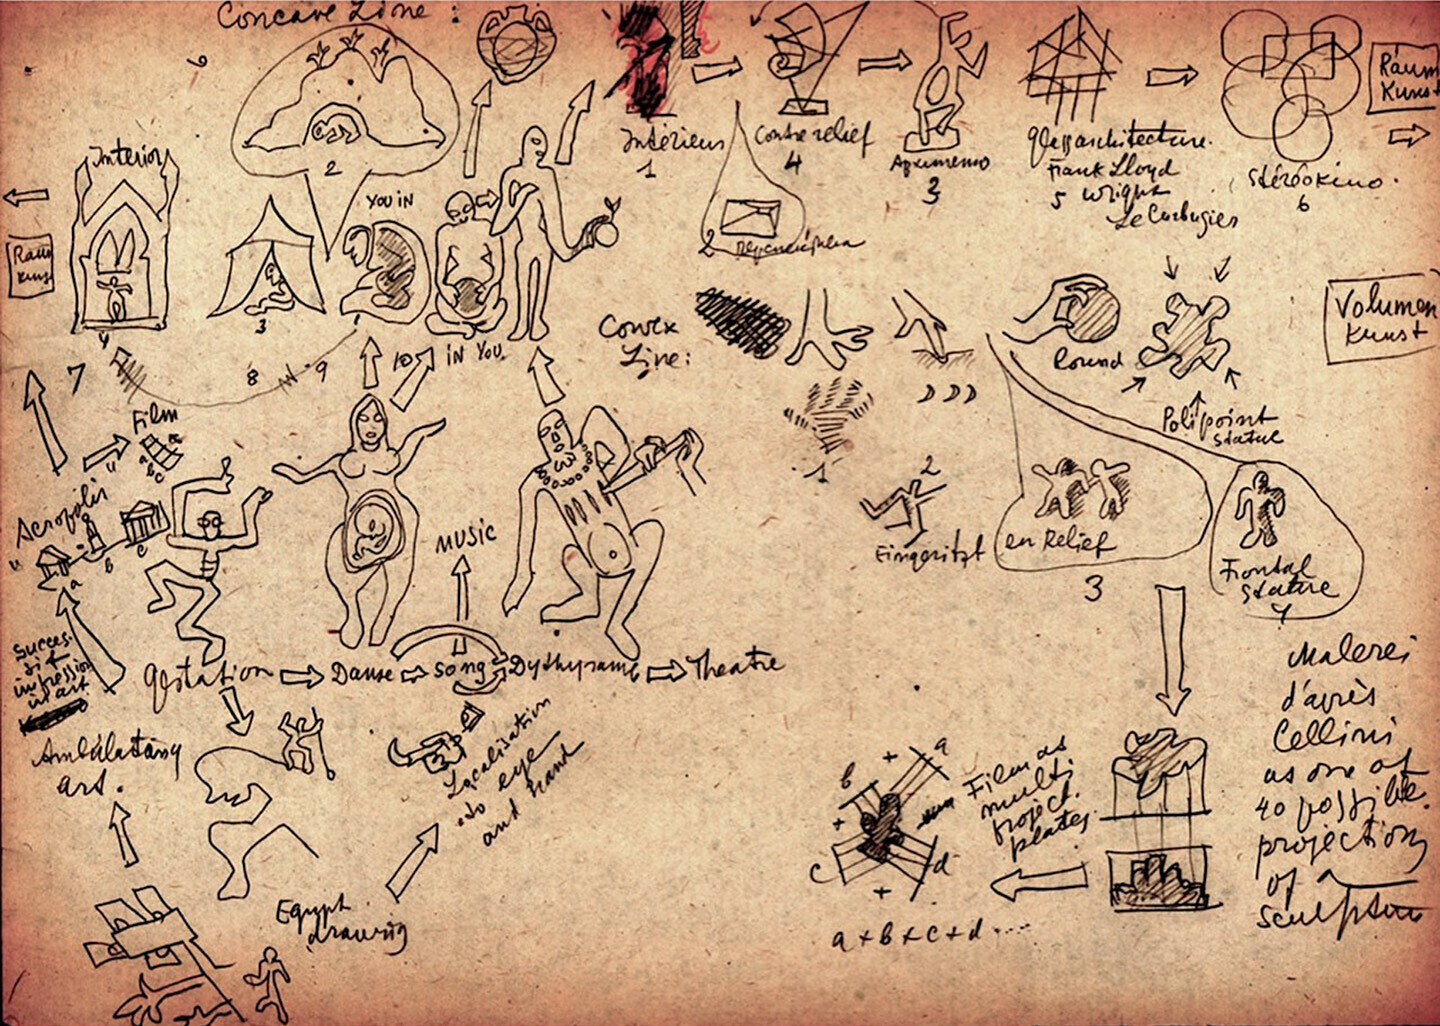 Concave Line:
6
Interior
2
YOU IN
Raum
Kunst
3
1
4
7
8
9
10
IN YOU
Intérieur
1
Contre relief
4
3
Glassarchitecture.
Frank Lloyd
5 Wright
Le Corbusier
Stéréokino.
6
Raum
Kunst
2
Convex
Line:
1
2
Eingeritzt
Round
Polipoint
statue
en Relief
3
Frontal
statue
4
Volumen
Kunst
Film
a b c
Acropolis
a
b
c
MUSIC
Succes-
sif
impression
in art
Gestation
Danse
Song
Dythyramb
Theatre
Ambulatory
art.
Localisation
to eye
and hand
Egypt
drawing
Film as
multi
project.
plates
a
b
c
d
a + b + c + d ....
Malerei
d'après
Cellini
as one of
40 possible
projections
of a
sculpture